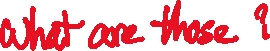 What are those ?